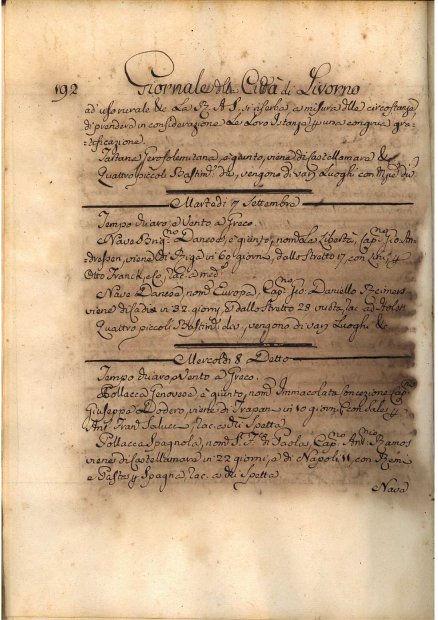 192 Giornale della Città di Livorno
ad uso rurale &c La R. A. S. si riserba a misura delle circostanze
di prendere in considerazione le loro Istanze una congrua gra-
tificazione
Tartana Gerosolemitana, è giunto, viene di Castellamare &c
Quattro piccoli Bastim.ti d.i, vengono di varj Luoghi con
Martedì 7 Settembre
Tempo vario, e Vento a Greco.
Nave Danese, è giunto, nom.a la Libertà, Cap.no Gio: An-
dressen, viene di Riga in 60 giorni, dallo stretto 17, con
Otto Franck, e
Nave Danese, nom.a Europa, Cap.no Gio: Daniello
viene di Cadice in 32 giorni, e dallo stretto 28
Quattro piccoli Bastim.ti d.i, vengono di varj Luoghi &c
Mercoldì 8 Detto
Tempo vario, e Vento a Greco.
Pollacca Genovese, è giunto, nom.a Immacolata Concezione, Cap.no
Giuseppe Dodero, viene di Trapani in 10 giorni con Sale, e
Ant. Fran. Saluce, rac. a chi Spetta
Pollacca Spagnola, nom.a S. F. di Paola, Cap.no Ant.o Ramos
viene di Castellamare in 22 giorni, e di Napoli 11, con Reme
e Paste p Spagna rac. a chi Spetta
Nave